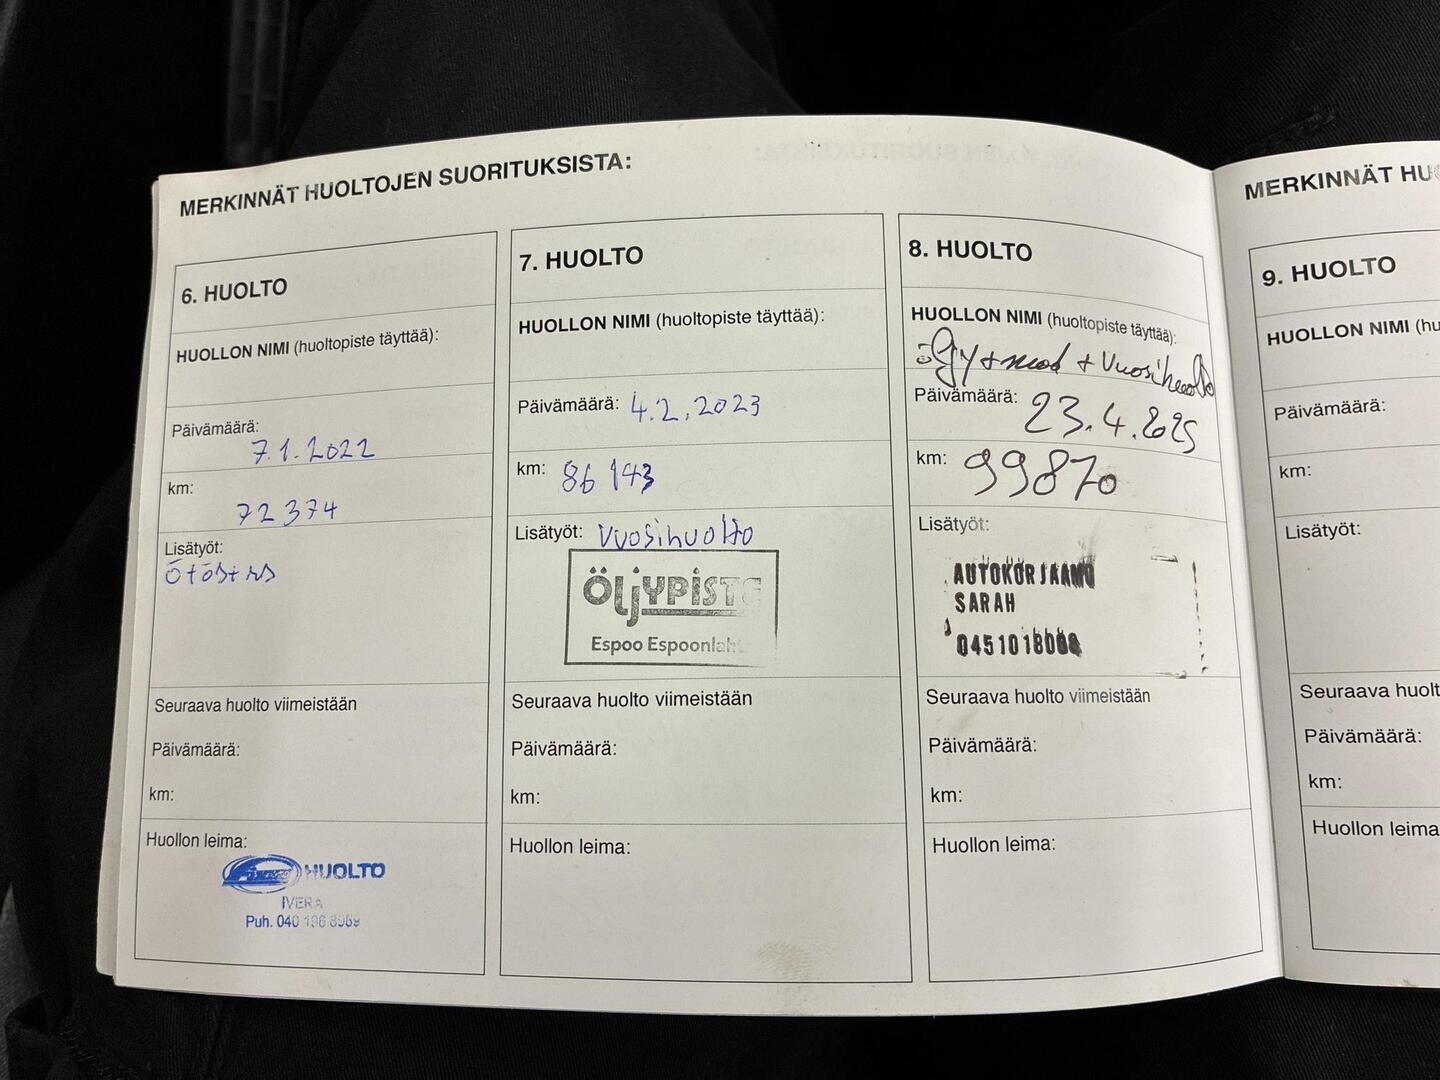 MERKINNÄT HUOLTOJEN SUORITUKSISTA:
6. HUOLTO
HUOLLON NIMI (huoltopiste täyttää):
Päivämäärä:
7.1.2022
km:
72 374
Lisätyöt:
Seuraava huolto viimeistään
Päivämäärä:
km:
Huollon leima:
HUOLTO
IVERA
Puh. 040 196 8969
7. HUOLTO
HUOLLON NIMI (huoltopiste täyttää):
Päivämäärä: 4.2.2023
km: 86 143
Lisätyöt: Vuosihuolto
ÖLJYPISTE
Espoo Espoonlahti
Seuraava huolto viimeistään
Päivämäärä:
km:
Huollon leima:
8. HUOLTO
HUOLLON NIMI (huoltopiste täyttää):
+ Vuosihuolto
Päivämäärä: 23.4.2025
km: 99870
Lisätyöt:
AUTOKORJAAMO
SARAH
Seuraava huolto viimeistään
Päivämäärä:
km:
Huollon leima:
MERKINNÄT HU
9. HUOLTO
HUOLLON NIMI (hu
Päivämäärä:
km:
Lisätyöt:
Seuraava huolt
Päivämäärä:
km:
Huollon leima